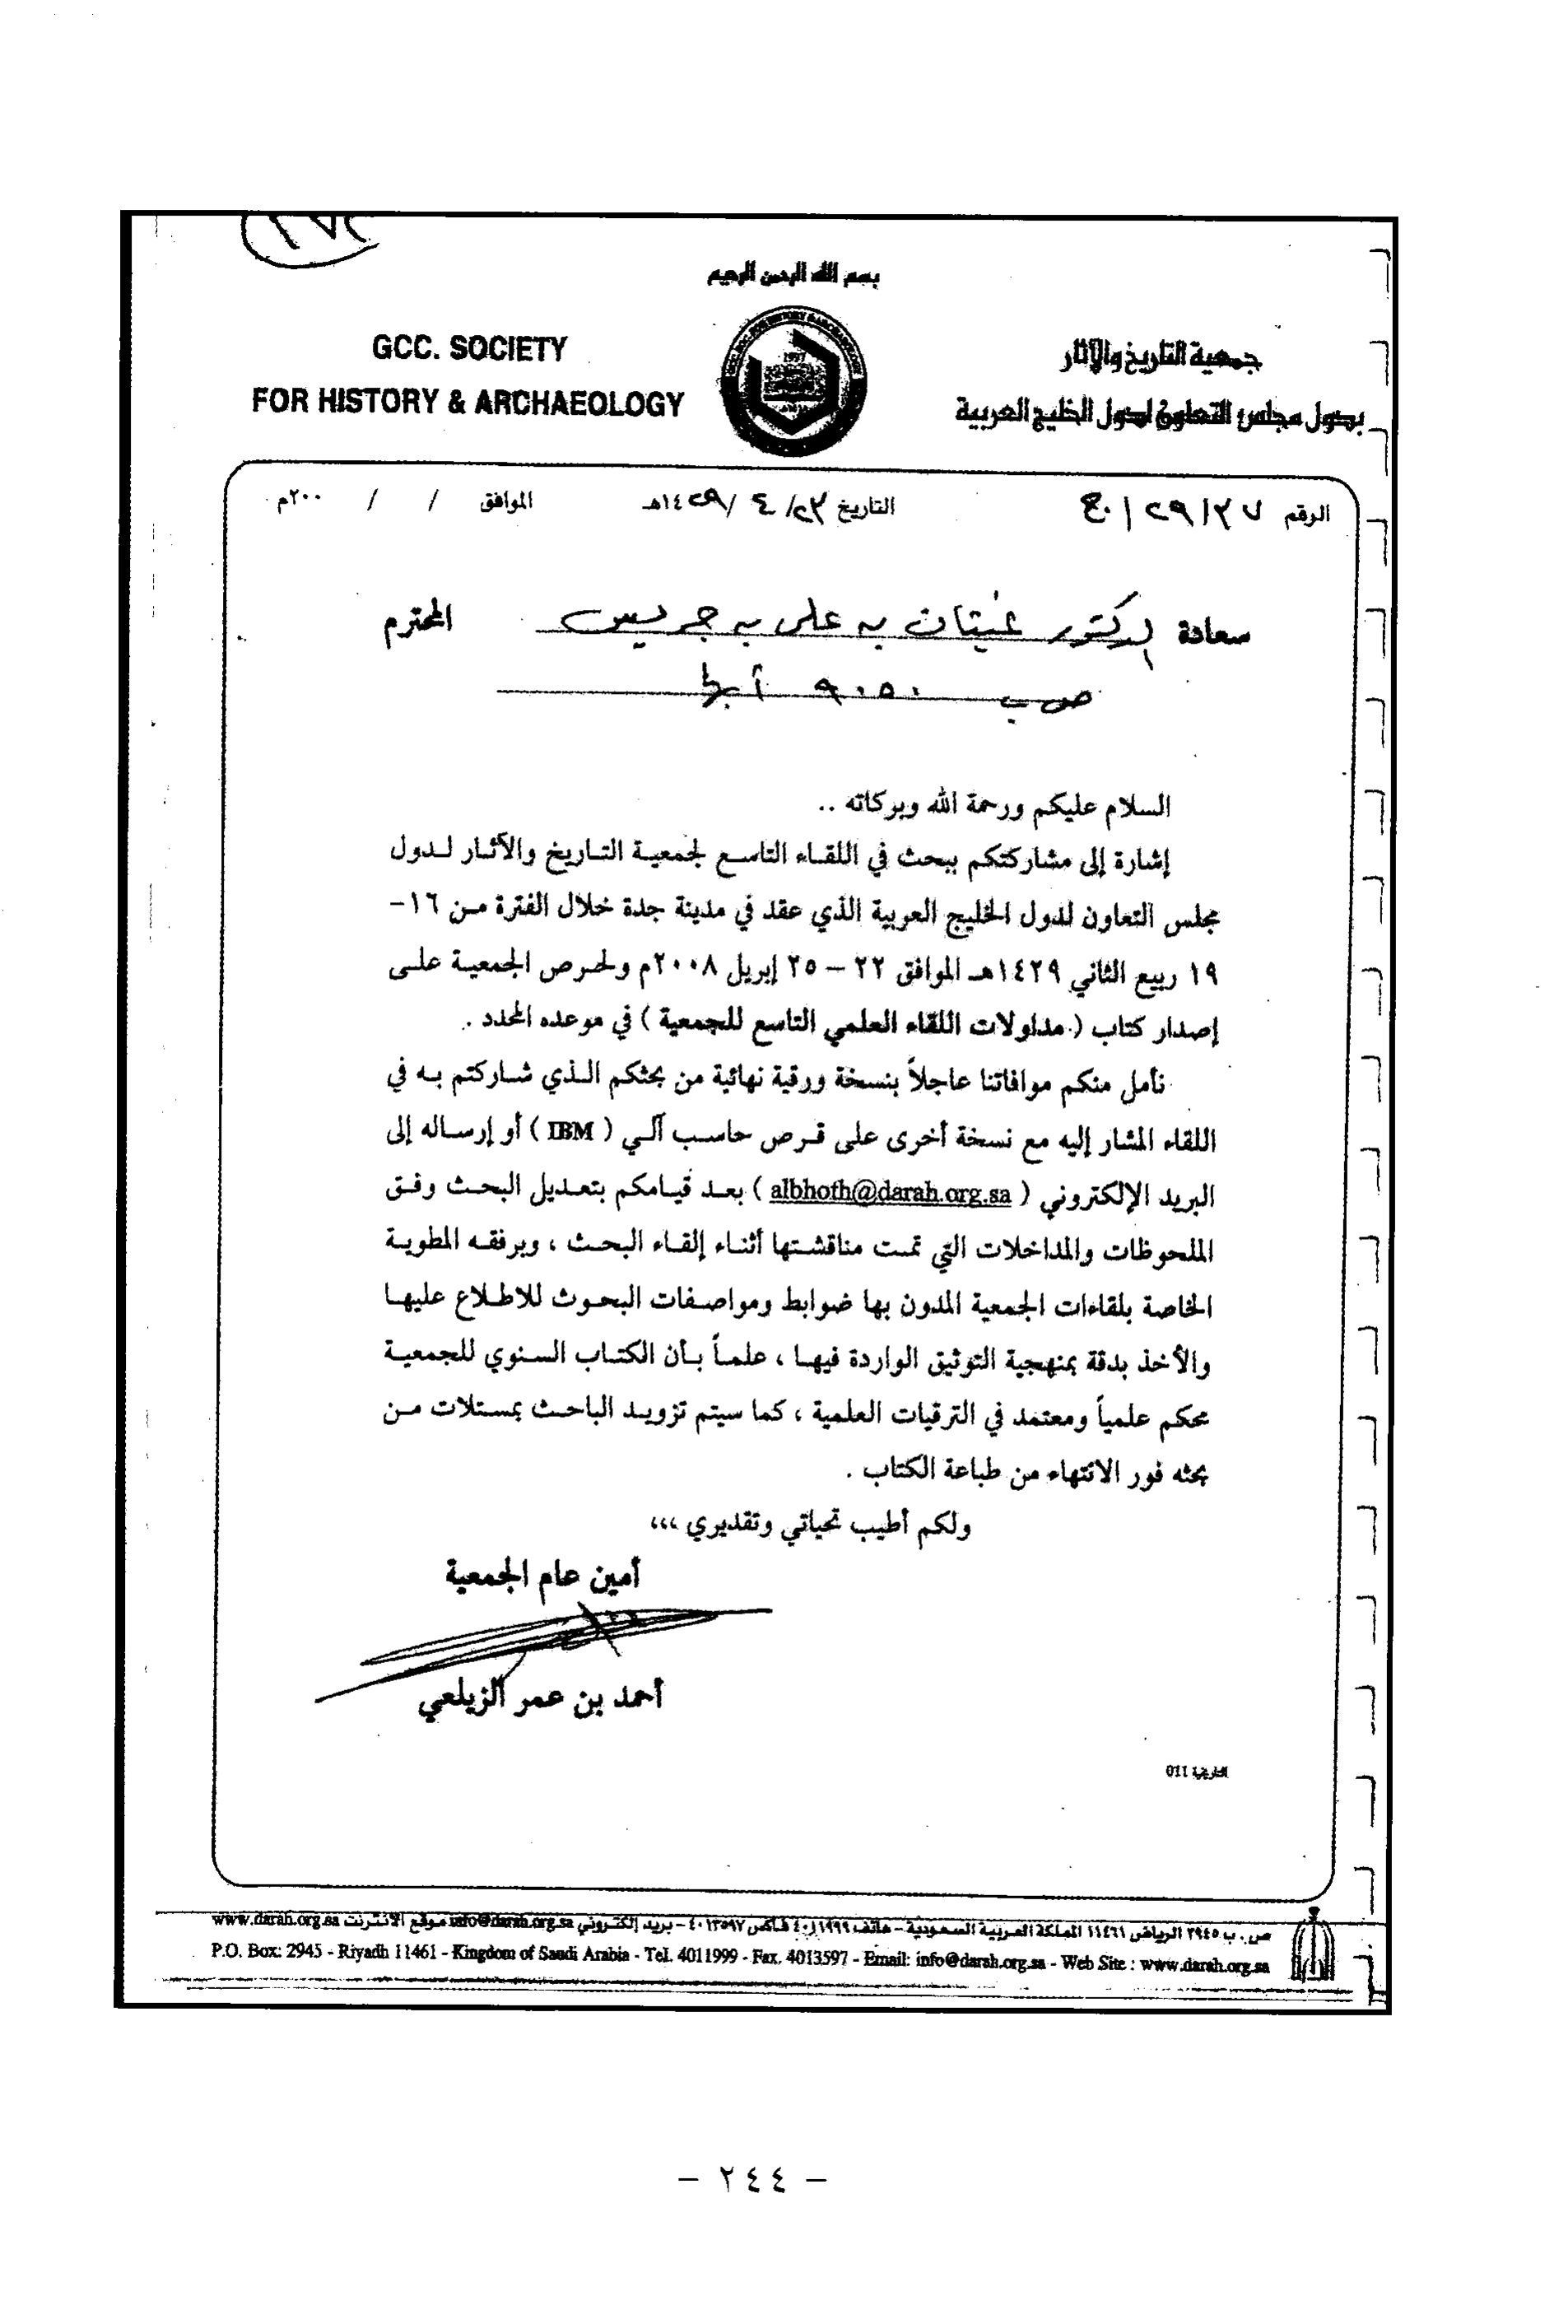 بسم الله الرحمن الرحيم
GCC. SOCIETY
FOR HISTORY & ARCHAEOLOGY
جمعية التاريخ والآثار
بدول مجلس التعاون لدول الخليج العربية
1997
الرقم ٢٩/٣٧/ج
التاريخ ٢٣/ ٤ /١٤٢٩هـ
الموافق / / ٢٠٠م
سعادة الدكتور غيثان بن علي بن جريس المحترم
ص ب ٩٠٥٠ أبها
السلام عليكم ورحمة الله وبركاته ..
إشارة إلى مشاركتكم ببحث في اللقاء التاسع لجمعية التاريخ والآثار لدول
مجلس التعاون لدول الخليج العربية الذي عقد في مدينة جدة خلال الفترة من ١٦-
١٩ ربيع الثاني ١٤٢٩هـ الموافق ٢٢ – ٢٥ إبريل ٢٠٠٨م ولحرص الجمعية على
إصدار كتاب ( مداولات اللقاء العلمي التاسع للجمعية ) في موعده المحدد .
نأمل منكم موافاتنا عاجلاً بنسخة ورقية نهائية من بحثكم الذي شاركتم به في
اللقاء المشار إليه مع نسخة أخرى على قرص حاسب آلي ( IBM ) أو إرساله إلى
البريد الإلكتروني ( albhoth@darah.org.sa ) بعد قيامكم بتعديل البحث وفق
الملحوظات والمداخلات التي تمت مناقشتها أثناء إلقاء البحث ، وبرفقه المطوية
الخاصة بلقاءات الجمعية المدون بها ضوابط ومواصفات البحوث للاطلاع عليها
والأخذ بدقة بمنهجية التوثيق الواردة فيها ، علماً بأن الكتاب السنوي للجمعية
محكم علمياً ومعتمد في الترقيات العلمية ، كما سيتم تزويد الباحث بمستلات من
بحثه فور الانتهاء من طباعة الكتاب .
ولكم أطيب تحياتي وتقديري ،،،
أمين عام الجمعية
أحمد بن عمر الزيلعي
011
ص . ب ٢٩٤٥ الرياض ١١٤٦١ المملكة العربية السعودية – هاتف ٤٠١١٩٩٩ فاكس ٤٠١٣٥٩٧ – بريد إلكتروني info@darah.org.sa موقع الانترنت www.darah.org.sa
P.O. Box: 2945 - Riyadh 11461 - Kingdom of Saudi Arabia - Tel. 4011999 - Fax. 4013597 - Email: info@darah.org.sa - Web Site : www.darah.org.sa
– ٢٤٤ –